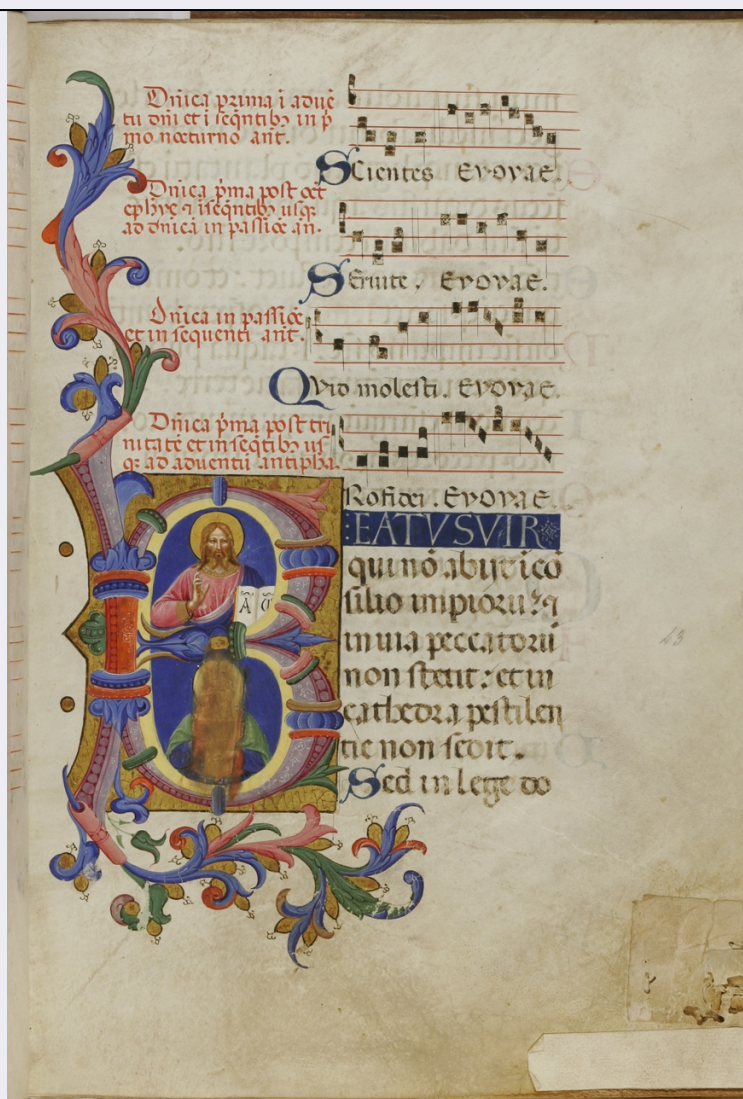 Dn̄ica prima i adue
tu dn̄i et i seqn̄tibꝫ in p̄
mo nocturno ant̄.
Scientes Evovae.
Dn̄ica p̄ma post oct̄
ephye ⁊ i seqn̄tibꝫ usqꝫ
ad dn̄icā in passiōe an̄.
Seruite. Evovae.
Dn̄ica in passiōe
et in sequenti ant̄.
Qvid molesti. Evovae.
Dn̄ica p̄ma post tri
nitatē et in seqn̄tibꝫ us
qꝫ ad aduentū antipha.
Rofi dei. Evovae.
A
BEATVS VIR
qui nō abijt i cō
silio impiorū: ⁊
in uia peccatorū
non stetit: et in
cathedra pestilen
tie non sedit.
Sed in lege do